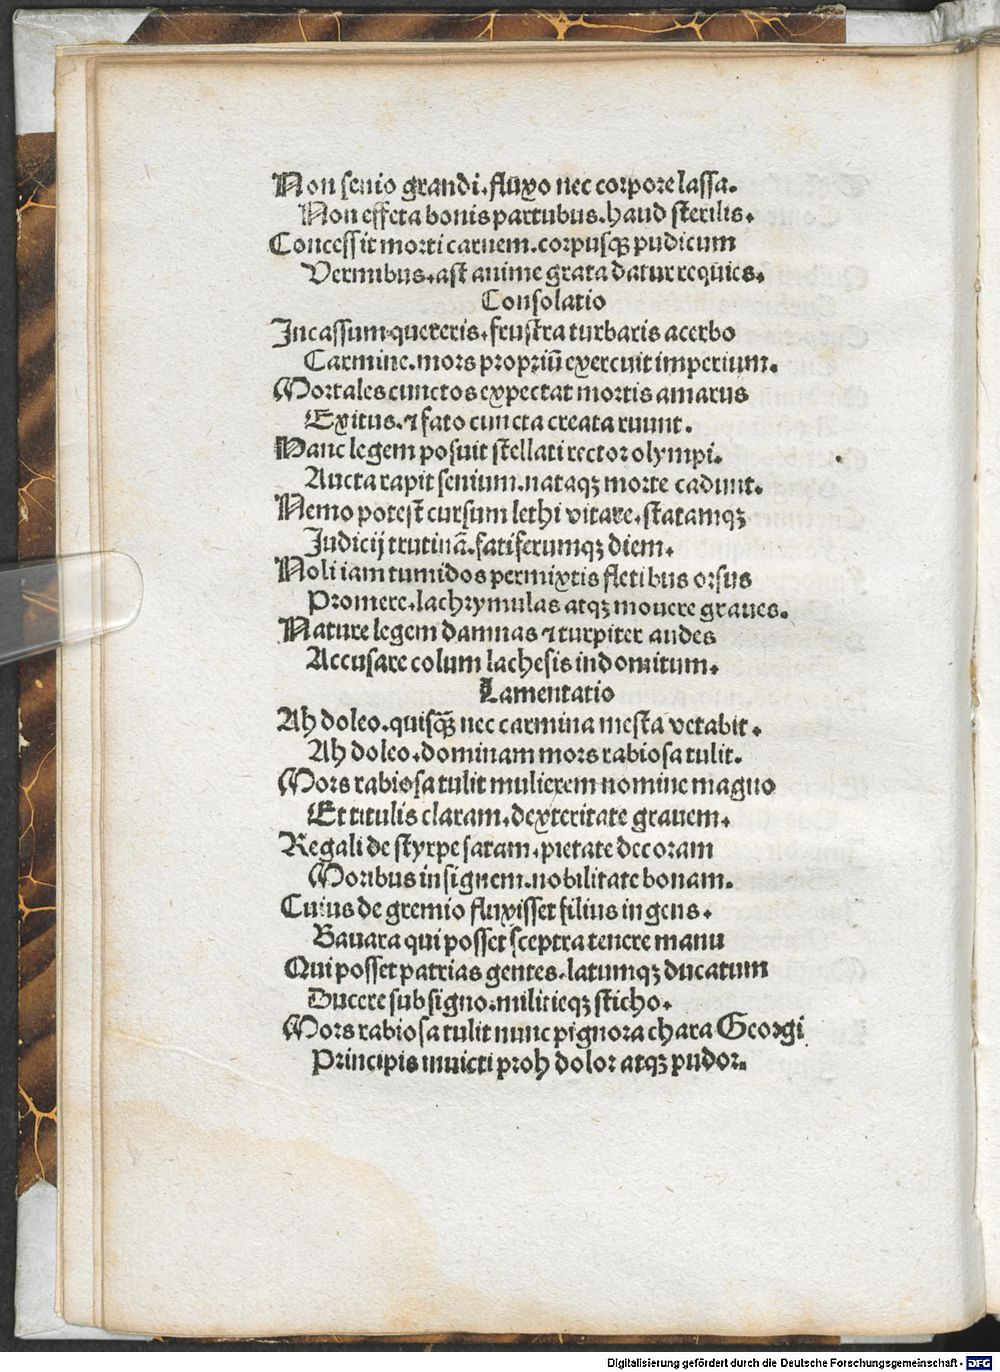 Non senio grandi. flūxo nec corpore lassa.
Non effeta bonis partubus. haud sterilis.
Concessit morti carnem. corpusqꝫ pudicum
Vermibus. ast anime grata datur requies.
Consolatio
Incassum quereris. frustra turbaris acerbo
Carmine. mors propriū exercuit imperium.
Mortales cunctos expectat mortis amarus
Exitus. ⁊ fato cuncta creata ruunt.
Hanc legem posuit stellati rector olympi.
Aucta rapit senium. nataqꝫ morte cadunt.
Nemo potest cursum lethi vitare. statamqꝫ
Judicij trutinā. fatiferumqꝫ diem.
Noli iam tumidos permixtis fletibus orsus
Promere. lachrymulas atqꝫ mouere graues.
Nature legem damnas ⁊ turpiter audes
Accusare colum lachesis indomitum.
Lamentatio
Ah doleo. quisqꝫ̄ nec carmina mesta vetabit.
Ah doleo. dominam mors rabiosa tulit.
Mors rabiosa tulit mulierem nomine magno
Et titulis claram. dexteritate grauem.
Regali de styrpe satam. pietate decoram
Moribus insignem. nobilitate bonam.
Cuius de gremio fluxisset filius ingens.
Bauara qui posset sceptra tenere manu
Qui posset patrias gentes. latumqꝫ ducatum
Ducere sub signo. militieqꝫ sticho.
Mors rabiosa tulit nunc pignora chara Georgi
Principis inuicti proh dolor atqꝫ pudor.
Digitalisierung gefördert durch die Deutsche Forschungsgemeinschaft - DFG